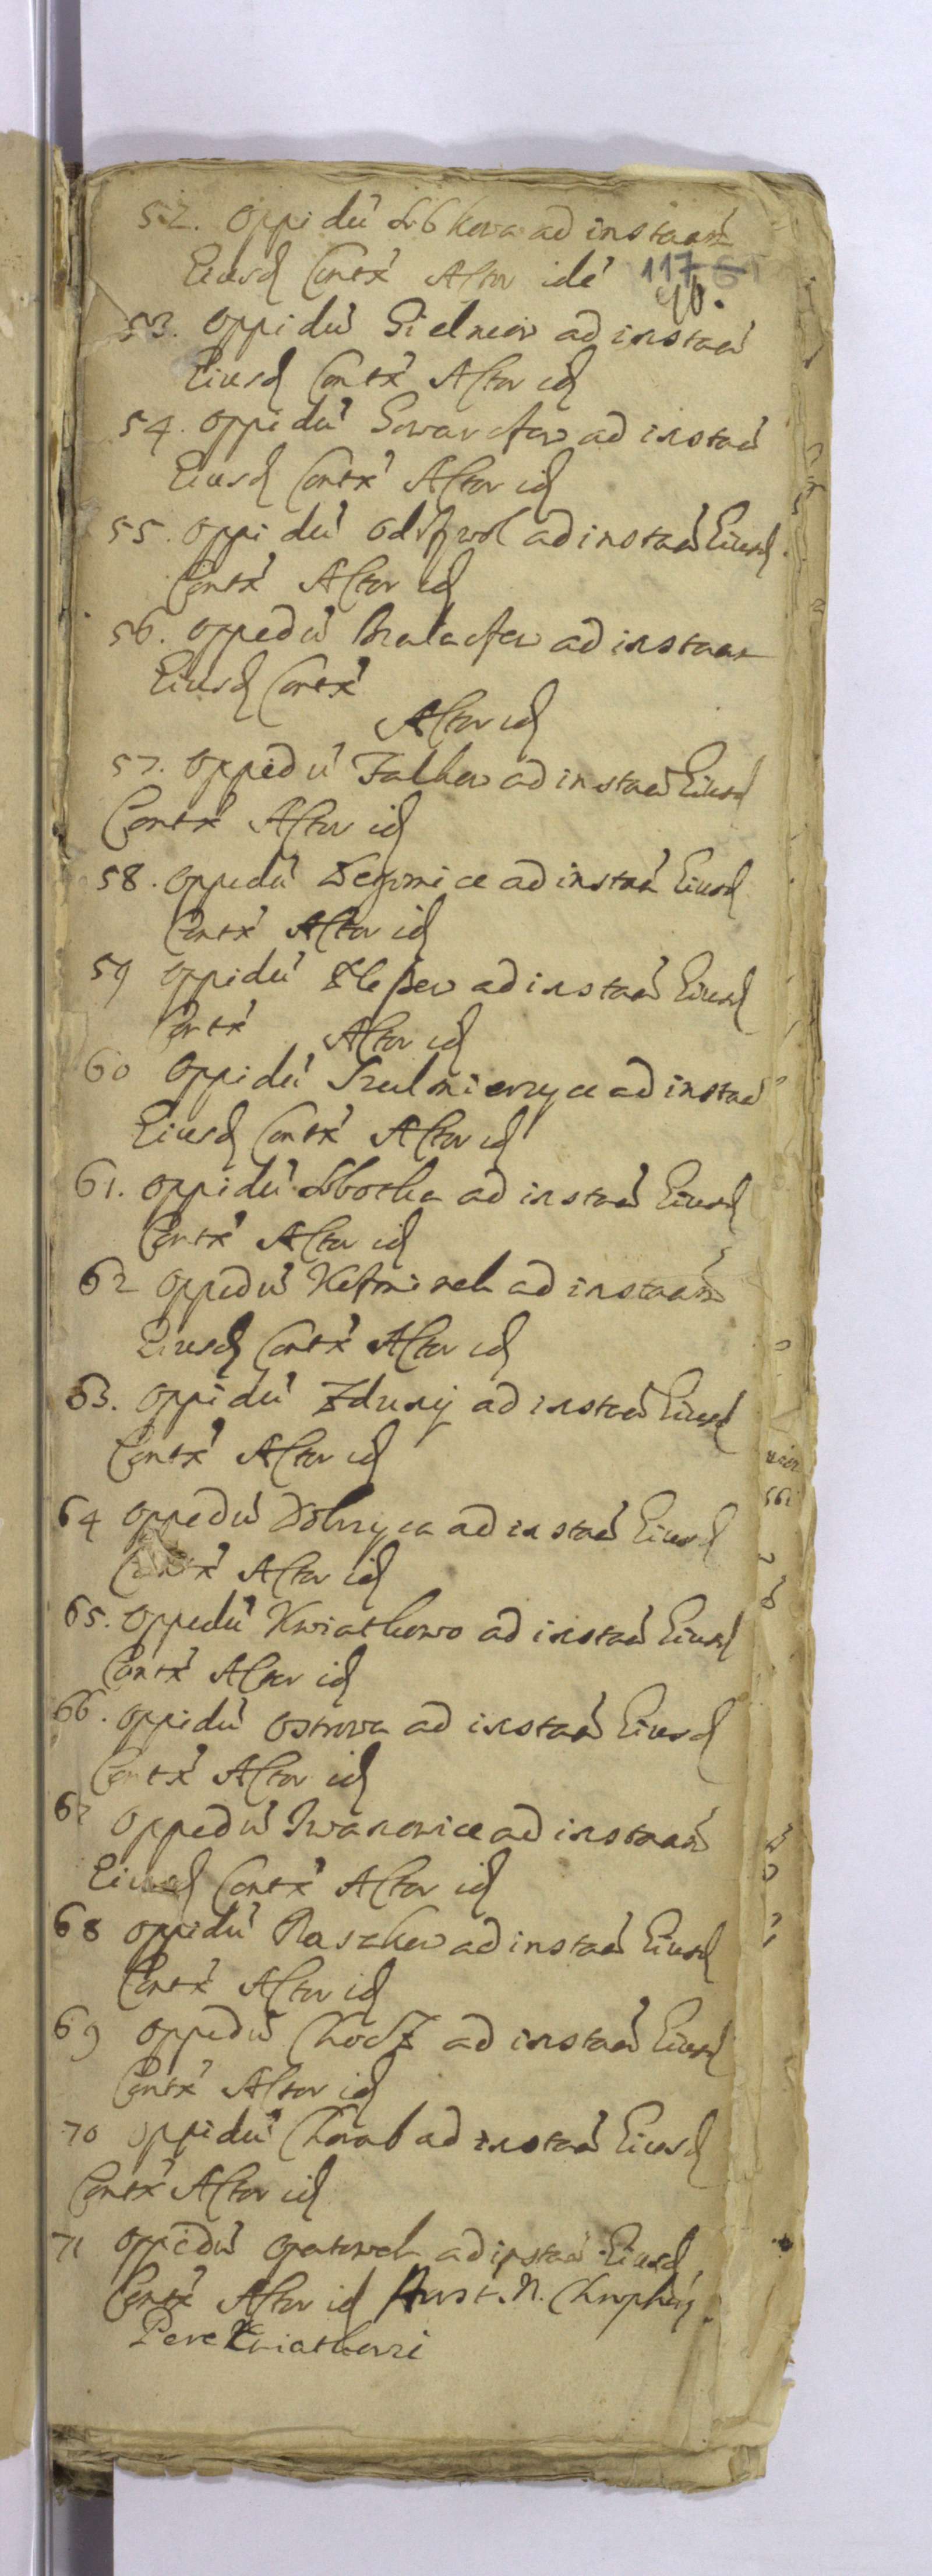 52. Oppidũ Libkova ad instaan
Eiusd Contx Actor ide 117 61
40.
53. Oppidũ Gielniow ad instaã
Eiusd Contx Actor id
54. Oppidũ Gowarcżow ad instaã
Eiusd Contx Actor id
55. Oppidũ Odrżwol ad instaã Eiusd
Contx Actor id
56. Oppedũ Bialaczew ad instaan
Eiusd Contx
Actor id
57. Oppedũ Falkow ad instaã Eiusd
Contx Actor id
58. Oppidũ ad instaã Eiusd
Contx Actor id
59 Oppidũ Pleszew ad instaã Eiusd
Contx Actor id
60 Oppidũ Szulmierzyce ad instaã
Eiusd Contx Actor id
61. Oppidũ ad instaã Eiusd
Contx Actor id
62 Oppedũ Kozminek ad instaan
Eiusd Contx Actor id
63. Oppidũ Zduny ad instaã Eiusd
Contx Actor id
64 Oppedũ Dobrzyca ad instaã Eiusd
Contx Actor id
65. Oppedũ Kwiatkowo ad instaã Eiusd
Contx Actor id
66. Oppidũ Ostrowa ad instaã Eiusd
Contx Actor id
67 Oppedũ Iwanowice ad instaan
Eiusd Contx Actor id
68 Oppidũ Raszkow ad instaã Eiusd
Contx Actor id
69 Oppedũ Chodz ad instaã Eiusd
Contx Actor id
70 Oppidũ Chorab ad instaã Eiusd
Contx Actor id
71 Oppedũ Opatowek ad instaã Eiusd
Contx Actor id N.
Kwiatkowsi